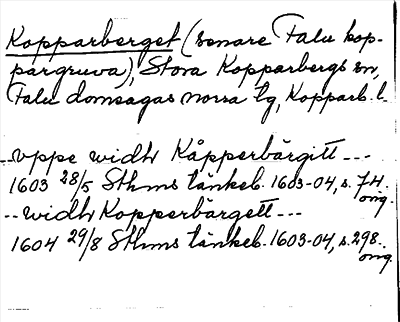 Kopparberget (senare Falu kop-
pargruva), Stora Kopparbergs sn,
Falu domsagas norra tg, Kopparb. l.
--- vppe widh Kåpperbärgitt ---
1603 28/5 Sthms tänkeb. 1603-04, s. 74.
orig.
--- widh Kopperbärgett ---
1604 29/8 Sthms tänkeb. 1603-04, s. 298.
orig.